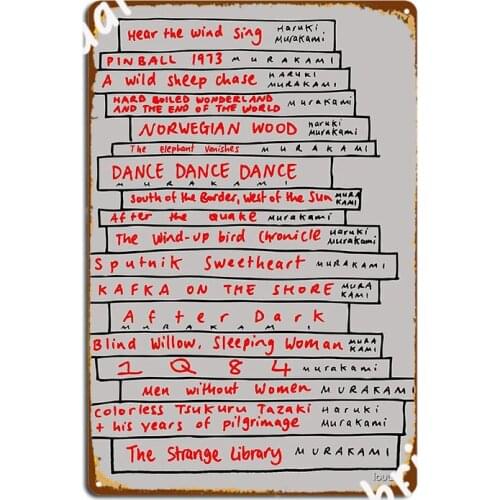 Hear the wind sing Haruki
Murakami
PINBALL 1973 MURAKAMI
A wild sheep chase HARUKI
MURAKAMI
HARD BOILED WONDERLAND
AND THE END OF THE WORLD murakami
NORWEGIAN WOOD Haruki
Murakami
The Elephant Vanishes MURAKAMI
DANCE DANCE DANCE
MURAKAMI
South of the Border, West of the Sun MURA
KAMI
After the Quake murakami
The Wind-up bird Chronicle Haruki
Murakami
Sputnik Sweetheart MURAKAMI
KAFKA ON THE SHORE MURA
KAMI
After Dark
MURAKAMI
Blind Willow, Sleeping Woman MURA
KAMI
1Q84 murakami
Men without Women MURAKAMI
Colorless Tsukuru Tazaki Haruki
+ his years of pilgrimage Murakami
The Strange Library MURAKAMI